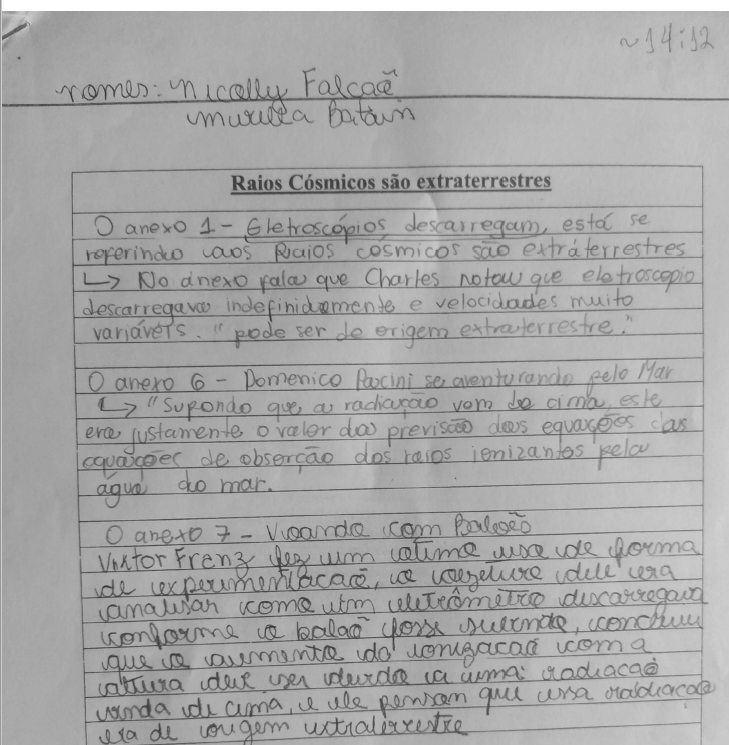 ~14:12
nomes: Nicolly Falcaõ
murilla
Raios Cósmicos são extraterrestres
O anexo 1 - Eletroscópios descarregam, está se
referindo aos Raios cósmicos são extráterrestres
↳ No anexo fala que Charles notou que eletroscopio
descarregava indefinidamente e velocidades muito
variávers. "pode ser de origem extraterrestre."
O anexo 6 - Domenico Pacini se aventurando pelo Mar
↳ "Supondo que a radiação vem de cima, este
era justamente o valor da previsão das equações das
equações de observção dos raios ionizantos pela
água do mar.
O anexo 7 - Voando com Balões
Victor Frenz fez um otimo uso de forma
de experimentacaõ, o objetivo dele era
analisar como um eletrômetro discarregava
conforme o balaõ fosse subindo, concluiu
que o aumento da ionizacaõ com a
altura deve ser devido a uma radiacaõ
vinda de cima, e ele pensou que essa radiacaõ
era de origem extraterrestre